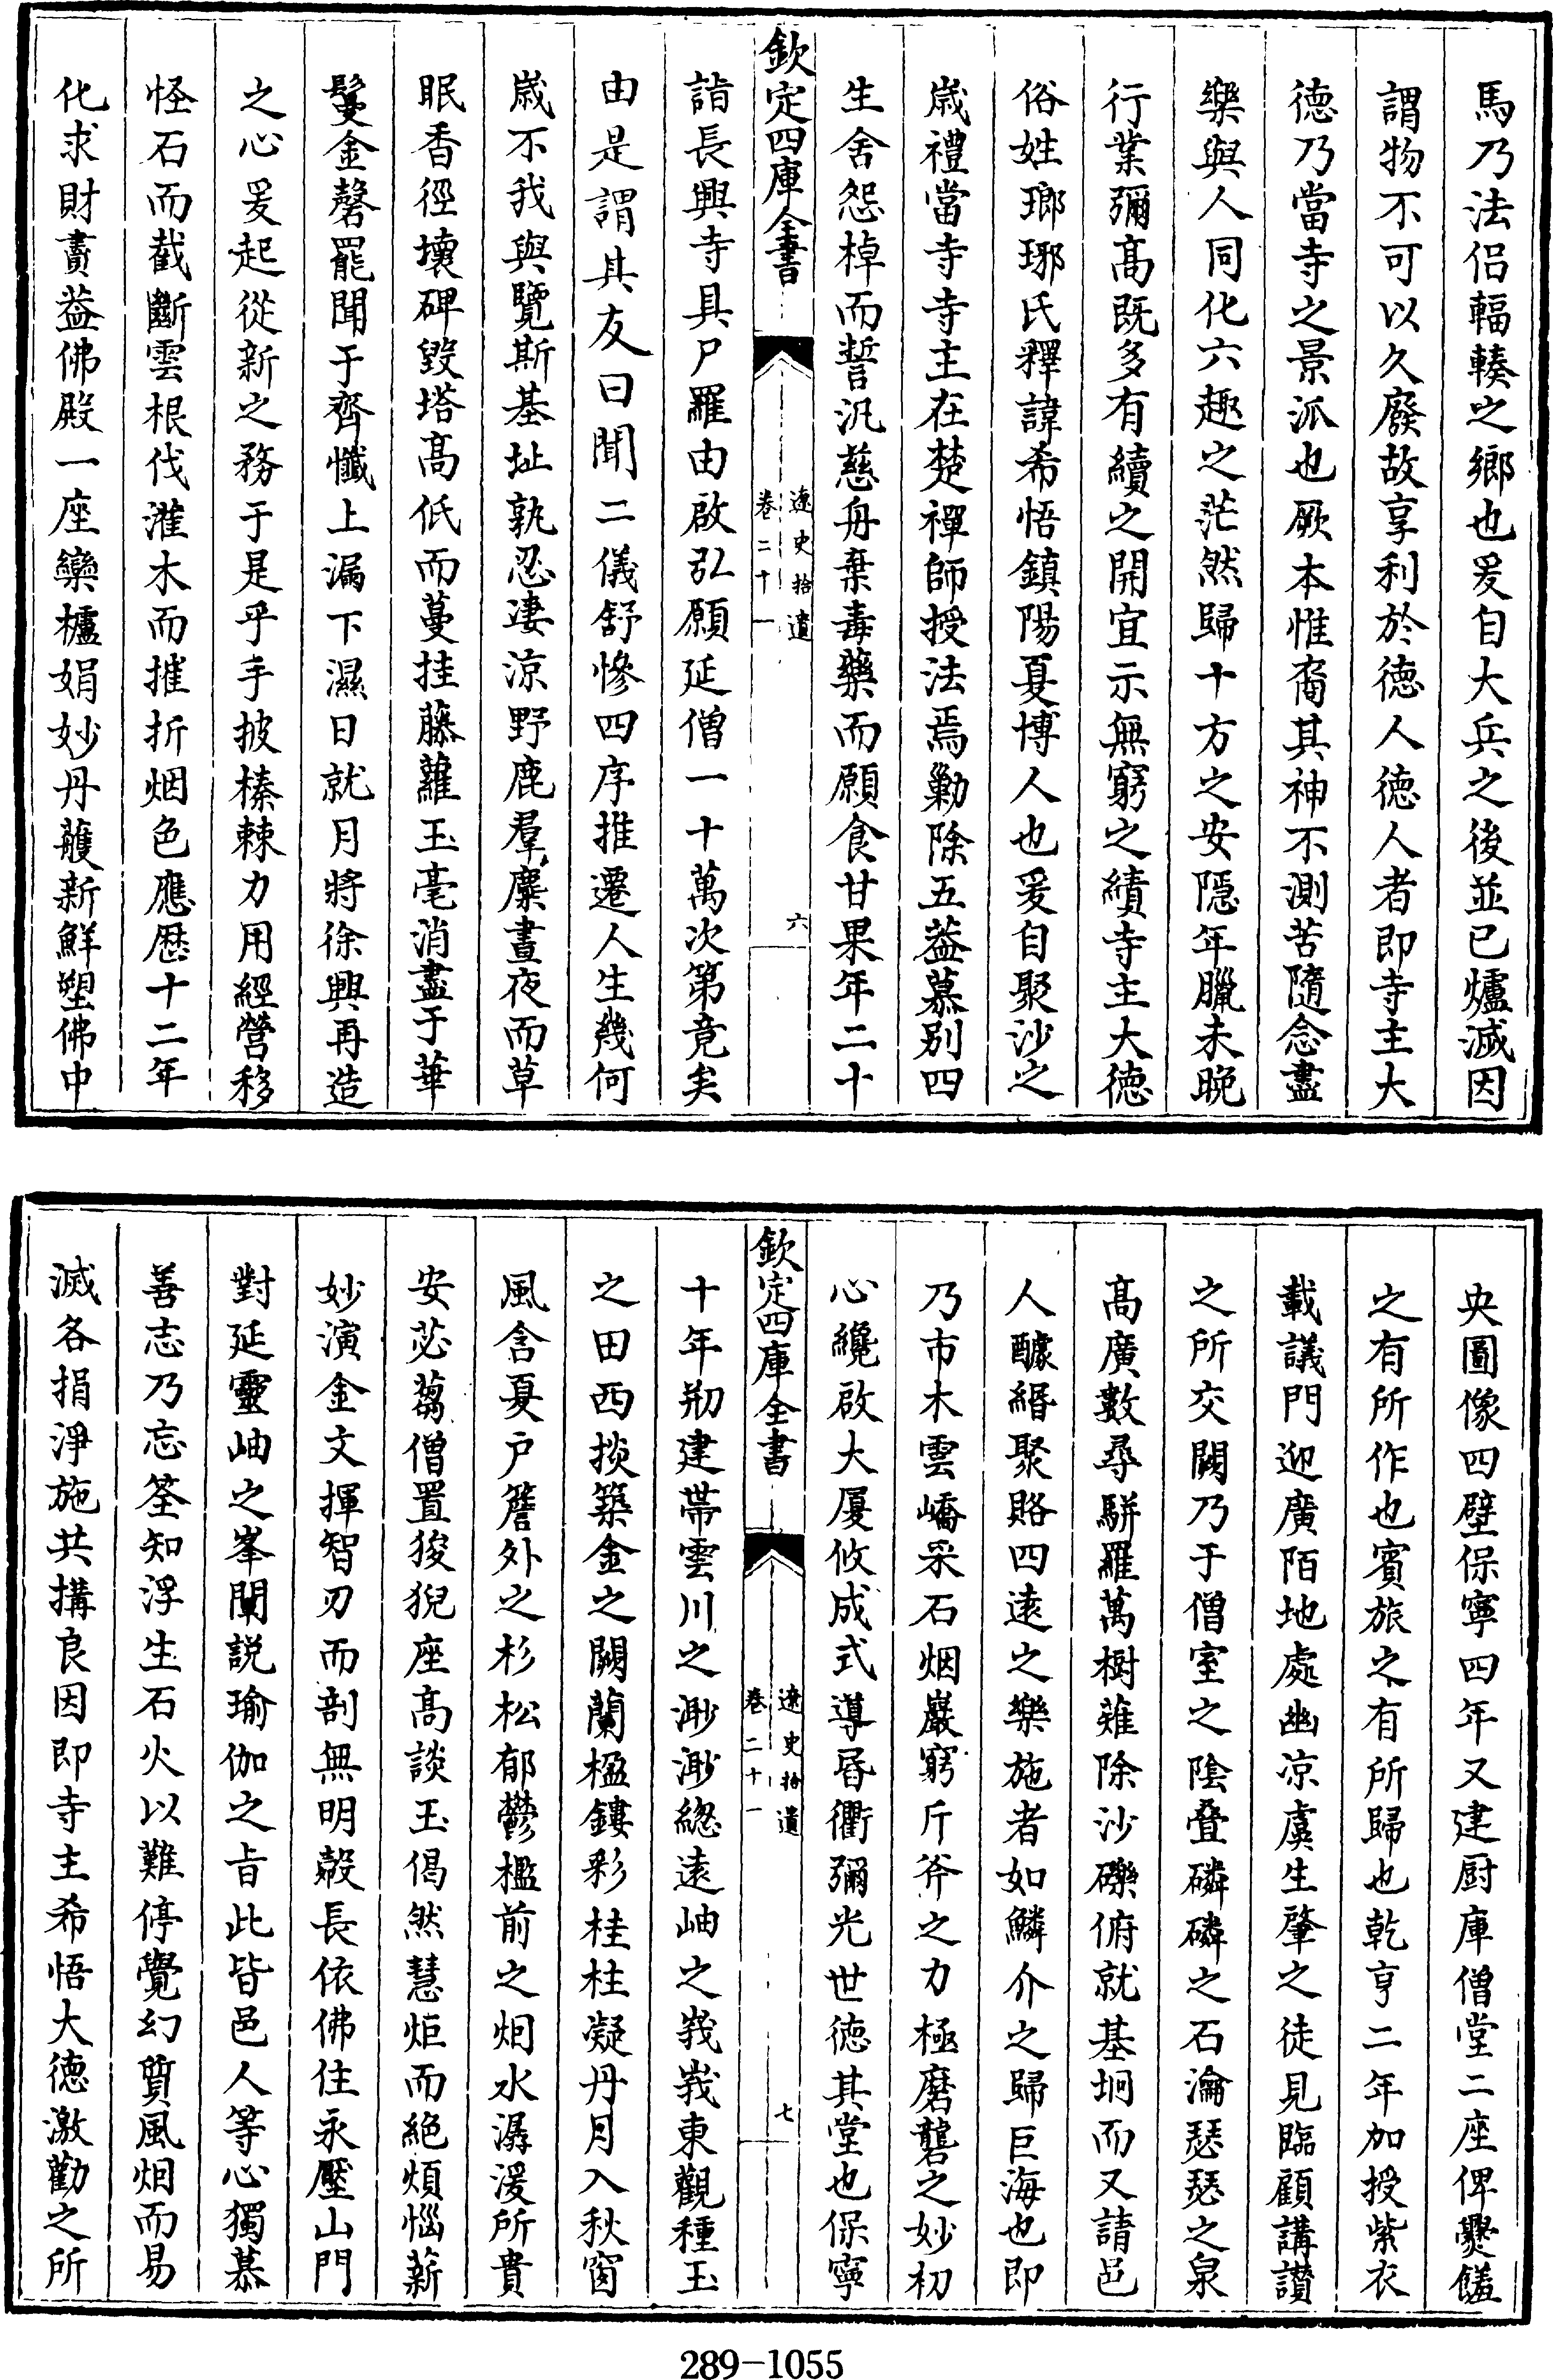 馬乃法侣輻輳之鄉也爰自大兵之後並已爐滅因
謂物不可以久廢故享利於徳人徳人者即寺主大
徳乃當寺之景派也厥本惟裔其神不測苦隨念盡
樂與人同化六趣之茫然歸十方之安隱年臘未晩
行業彌髙既多有續之開宜示無窮之績寺主大徳
俗姓瑯琊氏釋諱希悟鎮陽夏博人也爰自聚沙之
嵗禮當寺寺主在楚禪師授法焉勦除五葢慕别四
生舍怨棹而誓汎慈舟棄毒藥而願食甘果年二十
欽定四庫全書
遼史拾遺
卷二十一
六
詣長興寺具尸羅由啟弘願延僧一十萬次第竟矣
由是謂其友曰聞二儀舒慘四序推遷人生幾何
嵗不我與覽斯基址孰忍淒涼野鹿羣麋晝夜而草
眠香徑壞碑毀塔髙低而蔓挂藤蘿玉毫消盡于華
鬘金磬罷聞于齊懺上漏下濕日就月將徐興再造
之心爰起從新之務于是乎手披榛棘力用經營移
怪石而截斷雲根伐灌木而摧折烟色應厯十二年
化求財賮葢佛殿一座欒櫨娟妙丹雘新鮮塑佛中
央圖像四壁保寧四年又建厨庫僧堂二座俾爨饈
之有所作也賓旅之有所歸也乾亨二年加授紫衣
載議門迎廣陌地處幽凉虞生肇之徒見臨顧講讃
之所交闕乃于僧室之隂叠磷磷之石瀹瑟瑟之泉
髙廣數尋駢羅萬樹薙除沙礫俯就基坰而又請邑
人醵緡聚賂四逺之樂施者如鱗介之歸巨海也即
乃市木雲嶠采石烟巖窮斤斧之力極磨礱之妙初
心纔啟大厦攸成式導昬衢彌光世徳其堂也保寧
欽定四庫全書
遼史拾遺
卷二十一
七
十年剏建帶雲川之渺渺緫逺岫之峩峩東觀種玉
之田西掞築金之闕蘭楹鏤彩桂柱凝丹月入秋窗
風含夏户簷外之杉松郁鬱檻前之烟水潺湲所貴
安苾蒭僧置狻猊座髙談玉偈然慧炬而絶煩惱薪
妙演金文揮智刃而剖無明殼長依佛住永壓山門
對延靈岫之峯闡説瑜伽之旨此皆邑人等心獨慕
善志乃忘筌知浮生石火以難停覺幻質風烟而易
滅各捐淨施共搆良因即寺主希悟大徳激勸之所
289-1055